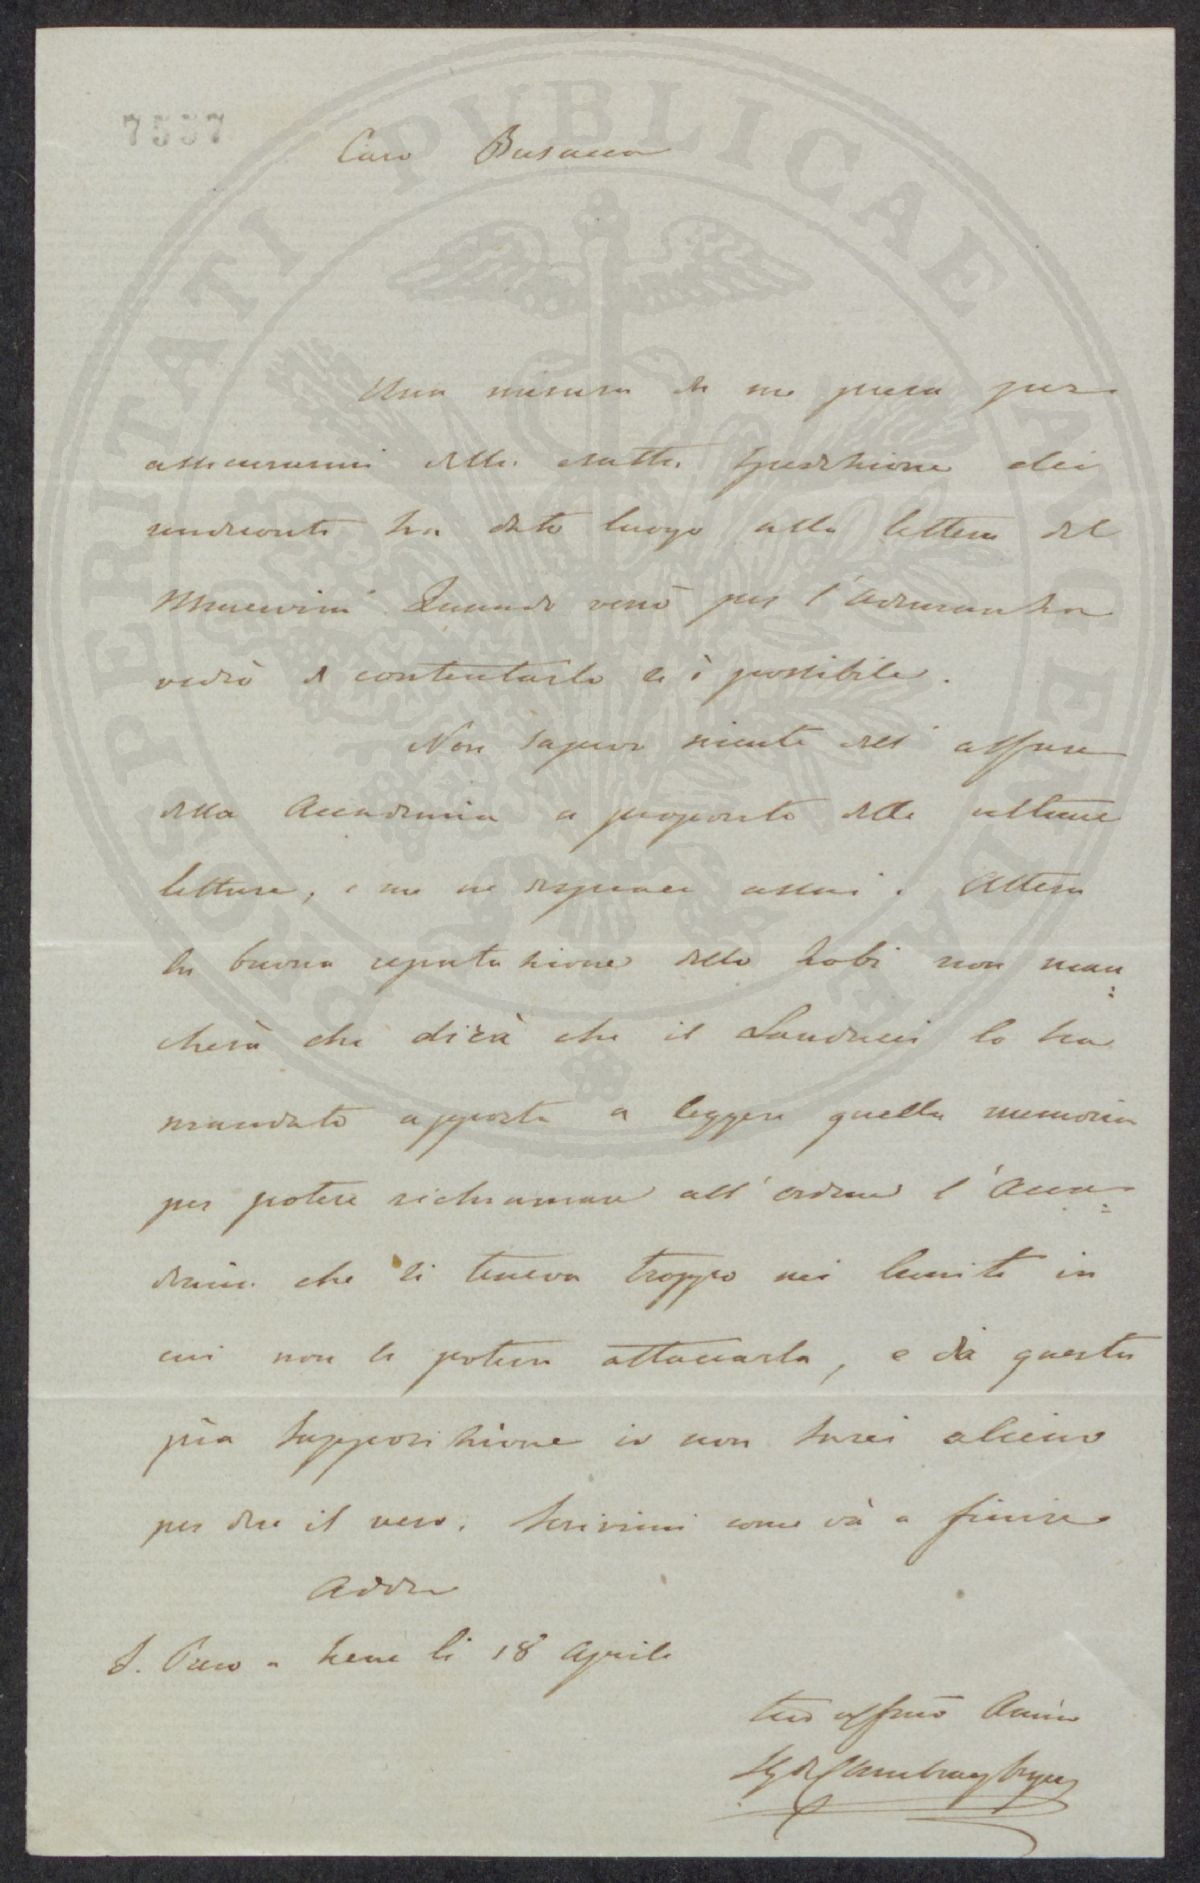 7557
PROSPERITATI PVBLICAE AVGENDAE
Caro Busacca
Una misura da me presa per
assicurarmi della esatta spedizione dei
rendiconti ha dato luogo alla lettera del
Quando verrò per l'adunanza
vedrò di contentarlo se è possibile.
Non sapevo niente dell' affare
della Accademia a proposito delle ultime
letture, e me ne dispiace assai. Attesa
la buona reputazione dello Zobi non man=
cherà chi dirà che il Landucci lo ha
mandato apposta a leggere quella memoria
per potere richiamare all' ordine l' Acca=
demia che si teneva troppo nei limiti in
cui non si poteva attaccarla, e da questa
pia supposizione io non sarei alieno
per dire il vero. Scrivimi come và a finire
Addio
S. Piero a Sieve li 18 Aprile
tuo affmo Amico
L G de Cambray Digny